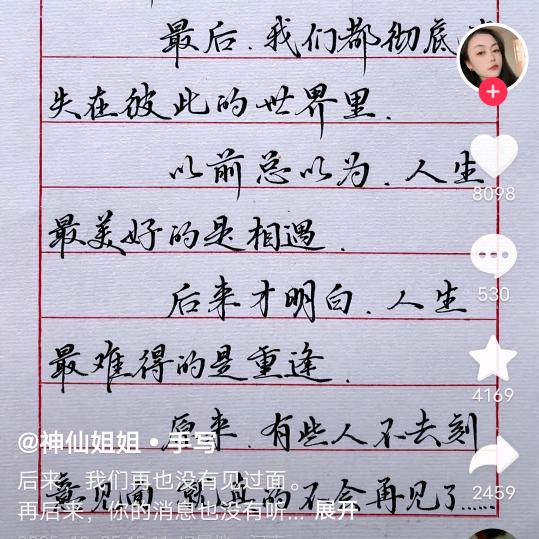 最后.我们都彻底
失在彼此的世界里.
以前总以为.人生
最美好的是相遇.
后来才明白.人生
最难得的是重逢.
原来.有些人不去刻
意见面 就真的不会再见了......
8098
530
4169
2459
@神仙姐姐•手写
后来，我们再也没有见过面。
再后来，你的消息也没有听... 展开